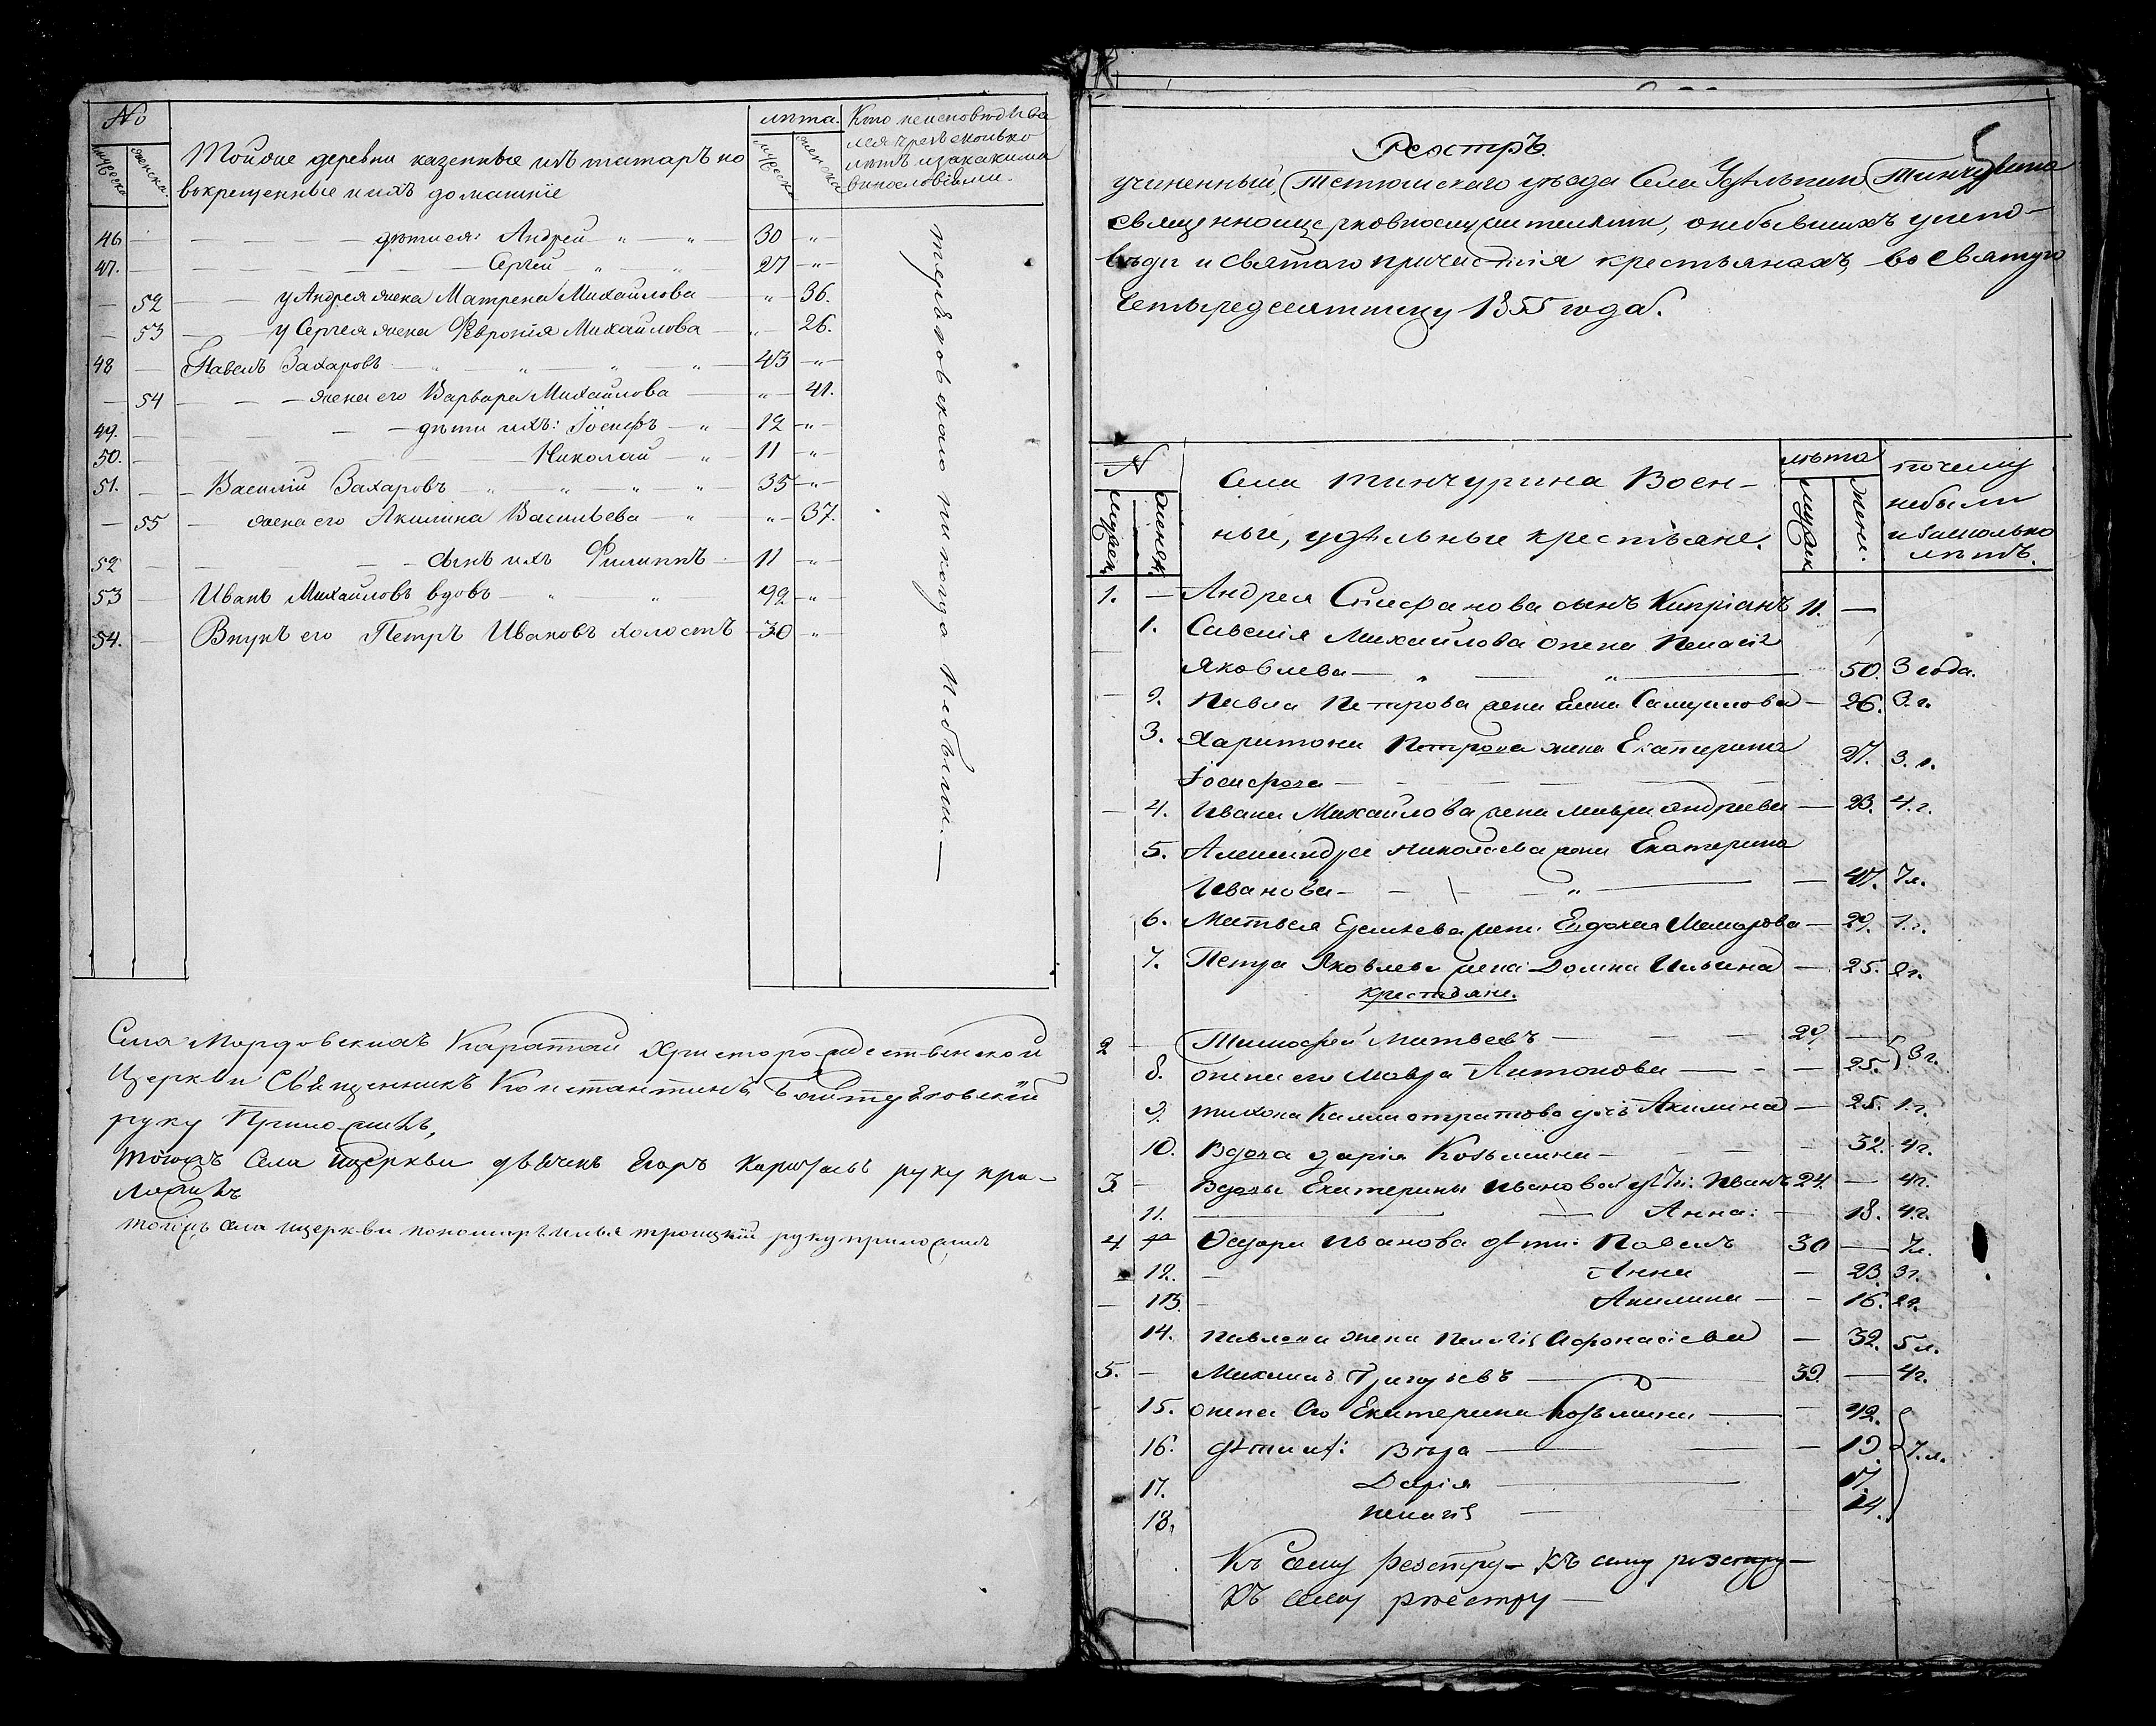 №
мужеска
женска
Тойже деревни казенные изъ татаръ но
вокрещенные и ихъ домашніе
лѣта.
мужеск
женска
Кто неисповѣдыва
лся чрезъ сколько
лѣтъ и за какими
винословіями.
46 дѣти ея: Андрей 30
47. Сергей 27
52 у Андрея жена Матрена Михайлова 36.
53 у Сергея жена Февронія Михайлова 26.
48 Павелъ Захаровъ 43
54 жена его Варвара Михайлова 41.
49. дѣти ихъ: Іосифъ 12
50. Николай 11
51. Василій Захаровъ 35
55 жена его Акилина Васильева 37.
52 сынъ ихъ Филиппъ 11
53 Иванъ Михайловъ вдовъ 92
54. Внукъ его Петръ Ивановъ холостъ 30
никогда небыли.
Села Мордовскихъ Каратай Христорождественской
Церкви Священникъ Константинъ
руку Приложилъ,
Тогожъ Села церкви дьячекъ Егоръ руку при-
ложилъ
тогожъ села церкви пономарь илья троицкій руку приложилъ
5
Реэстръ.
учиненный, Тетюшскаго уѣзда Села Удѣльнаго Тинчурина
священноцерковнослужителями, онебывшихъ уиспо-
вѣди и святаго причастія крестьянахъ, во святую
Четыредесятницу 1855 года.
№
мужек.
женск.
Села Тинчурина Воен-
ные, удѣльные крестьяне.
лѣта
мужск
женс.
почему
небыли
и сколько
лѣтъ.
1. Андрея сынъ Кипріанъ 11.
1. Савелія Михайлова жена Пелагія
Яковлева 50. 3 года.
2. Павла Петрова жена Елена Самуилова 26. 3. г.
3. Харитона Петрова жена Екатерина
Іосифова 27. 3. г.
4. Ивана Михайлова жена Мавра Андреева 23. 4. г.
5. Александра Николаева жена Екатерина
Иванова 47. 7 л.
6. Матвея жена Евдокея 29. 1. г.
7. Петра Яковлева жена Домна Ильина 25. 2 г.
Крестьяне.
2 Тимофей Матвеевъ 29.
8. жена его Мавра Антонова 25. 3 г.
9. Тихона Каллистратова дочь Акилина 25. 1. г.
10. Вдова Дарія Козьмина 32. 4 г.
3. Вдовы Екатерины Ивановой дѣти: Иванъ 24. 4 г.
11. Анна: 18. 4. г.
4. Федора Иванова дѣти: Павелъ 30 7 л.
12. Анна 23. 3 г.
13. Акилина 16. 2 г.
14. Павлова жена Пелагія Афонасіева 32. 5 л.
5. Михаилъ Григорьевъ 39. 4 г.
15. жена его Екатерина Козьмина 42.
16. дѣти ихъ: Вѣра 19. 7. л.
17. Дарія 17.
18. Пелагія 14.
Къ сему реэстру Къ сему реэстру
Къ сему реэстру